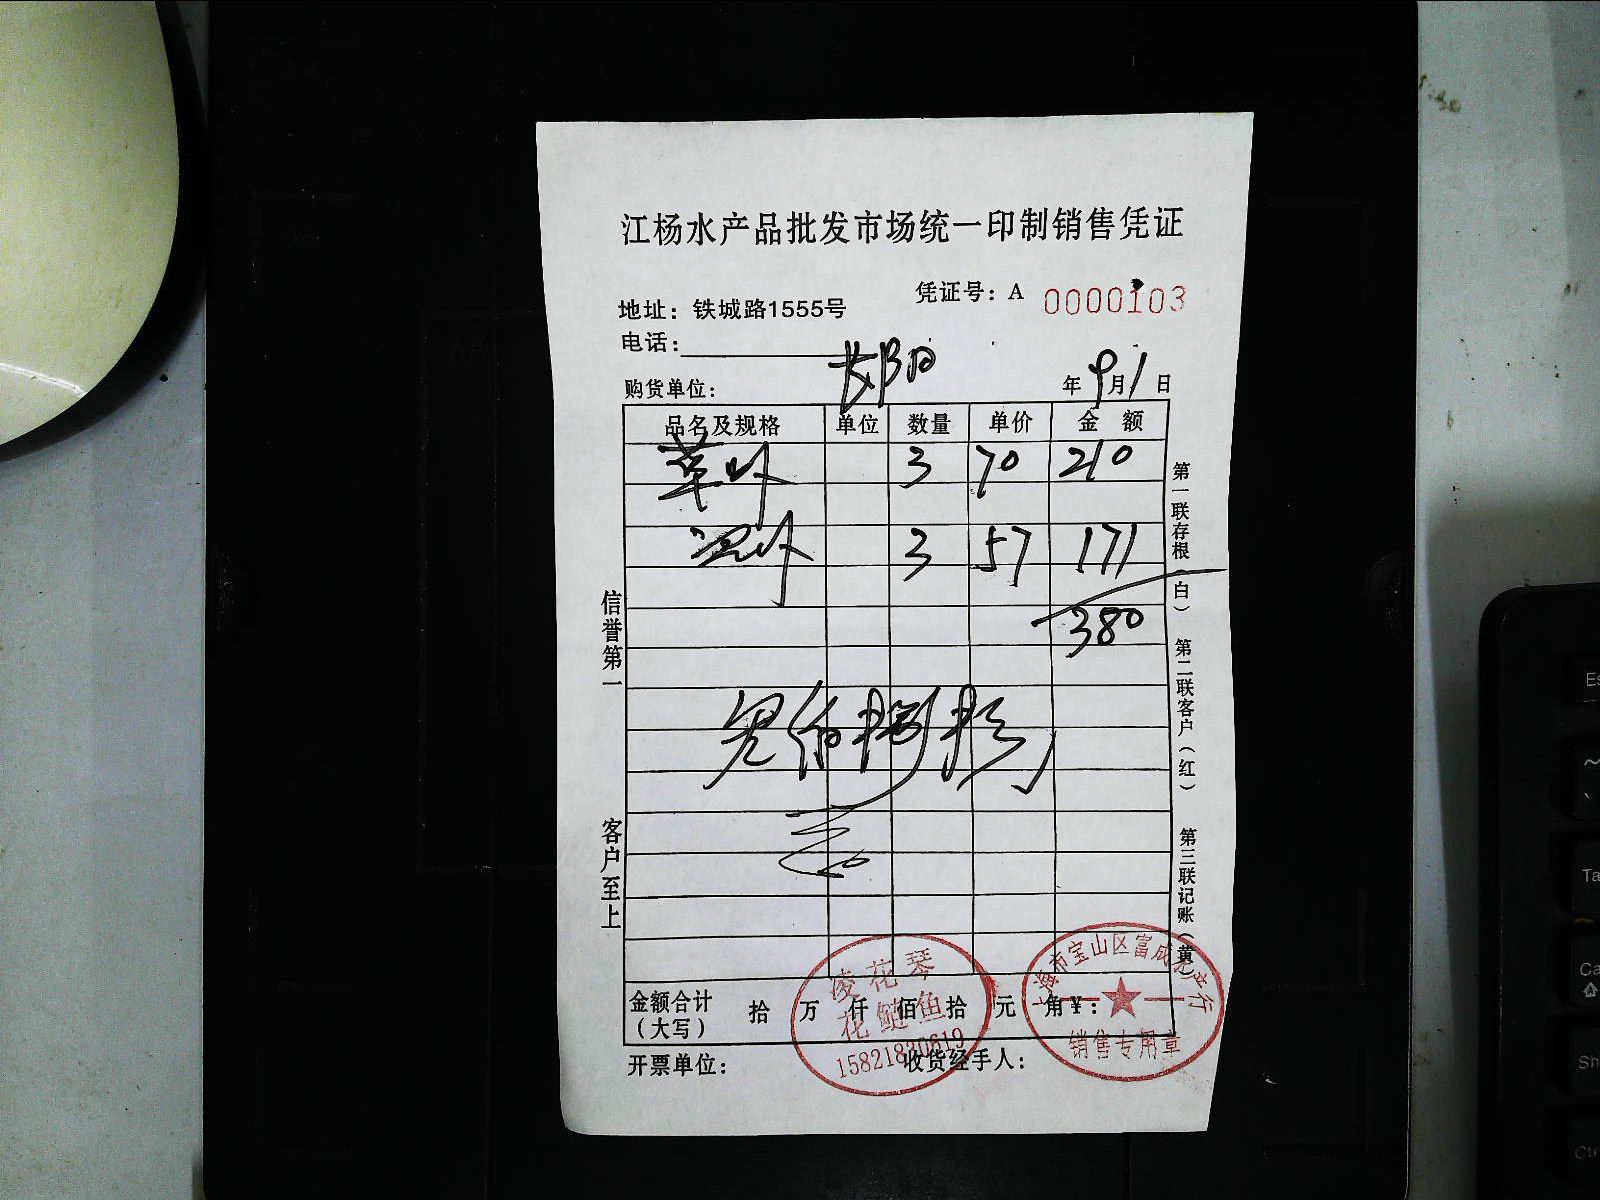 江杨水产品批发市场统一印制销售凭证
凭证号：A 0000103
地址：铁城路1555号
电话：
购货单位：
年9月1日
品名及规格 单位 数量 单价 金 额
草 3 70 210
3 57 171
380
信誉第一
客户至上
第一联存根（白）
第二联客户（红）
第三联记账（黄）
金额合计（大写） 拾 万 仟 佰 拾 元 角 ¥：
开票单位： 收货经手人：
凌花琴
花鲢鱼
15821830619
上海市宝山区富成水产行
销售专用章
Es
~
Ta
Ca
Sh
Ct